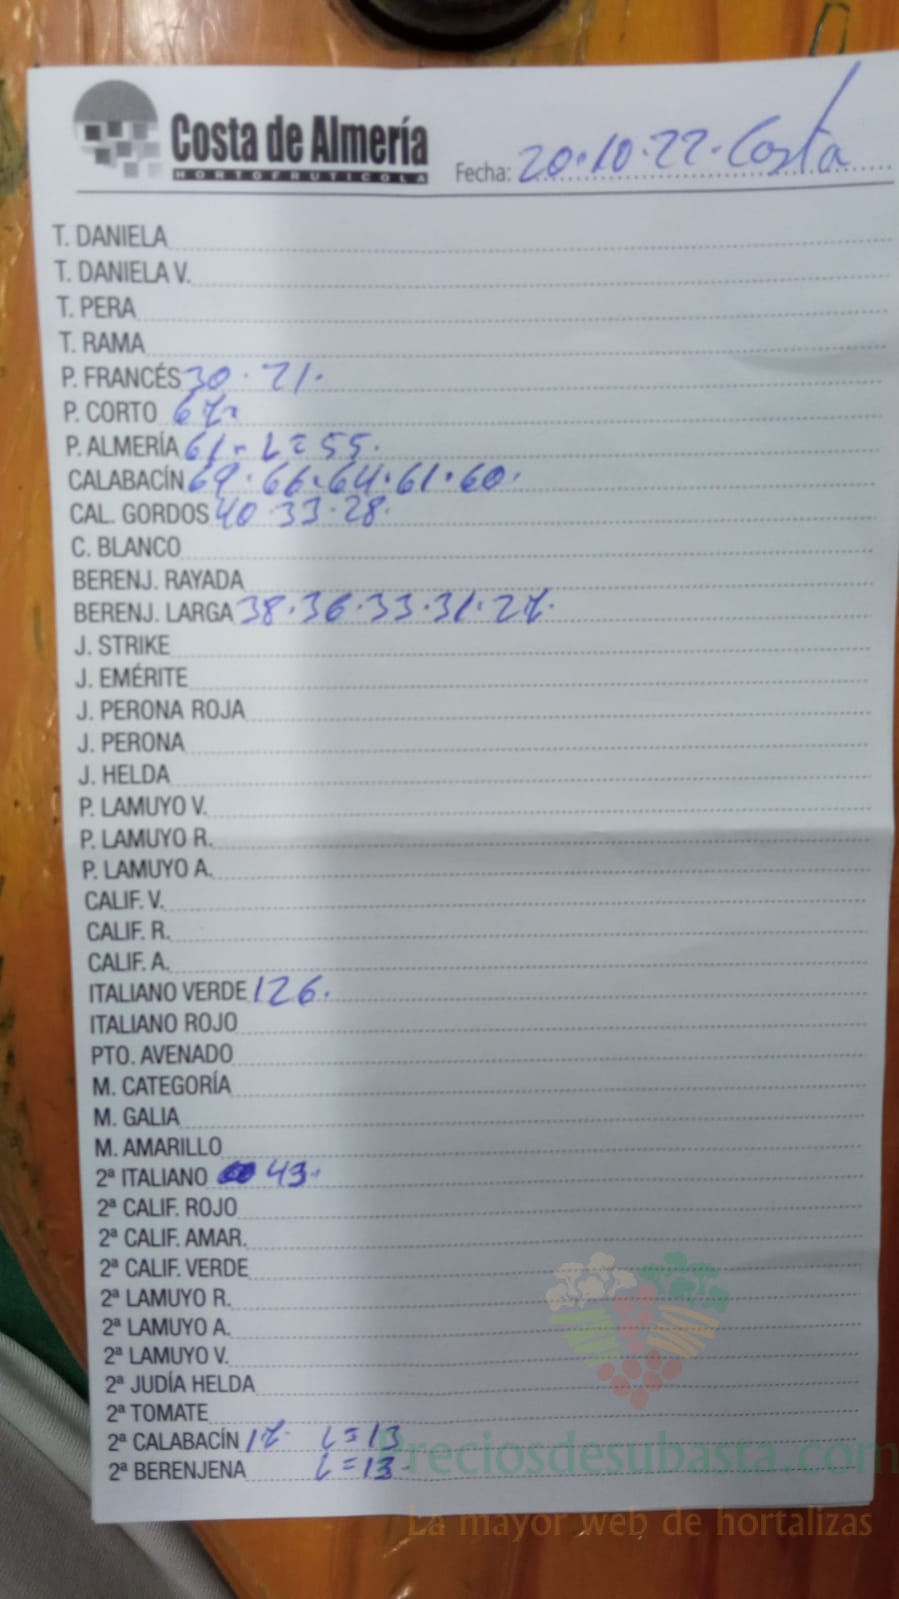 Costa de Almería
HORTOFRUTICOLA
Fecha: 20.10.22. Costa
T. DANIELA
T. DANIELA V.
T. PERA
T. RAMA
P. FRANCÉS 30 . 21.
P. CORTO 67.
P. ALMERÍA 61 - L = 55.
CALABACÍN 69 . 66 . 64 . 61 . 60.
CAL. GORDOS 40 . 33 . 28.
C. BLANCO
BERENJ. RAYADA
BERENJ. LARGA 38 . 36 . 33 . 31 . 27.
J. STRIKE
J. EMÉRITE
J. PERONA ROJA
J. PERONA
J. HELDA
P. LAMUYO V.
P. LAMUYO R.
P. LAMUYO A.
CALIF. V.
CALIF. R.
CALIF. A.
ITALIANO VERDE 126.
ITALIANO ROJO
PTO. AVENADO
M. CATEGORÍA
M. GALIA
M. AMARILLO
2ª ITALIANO 43.
2ª CALIF. ROJO
2ª CALIF. AMAR.
2ª CALIF. VERDE
2ª LAMUYO R.
2ª LAMUYO A.
2ª LAMUYO V.
2ª JUDÍA HELDA
2ª TOMATE
2ª CALABACÍN 17. L = 13
2ª BERENJENA L = 13
Preciosdesubasta.com
La mayor web de hortalizas